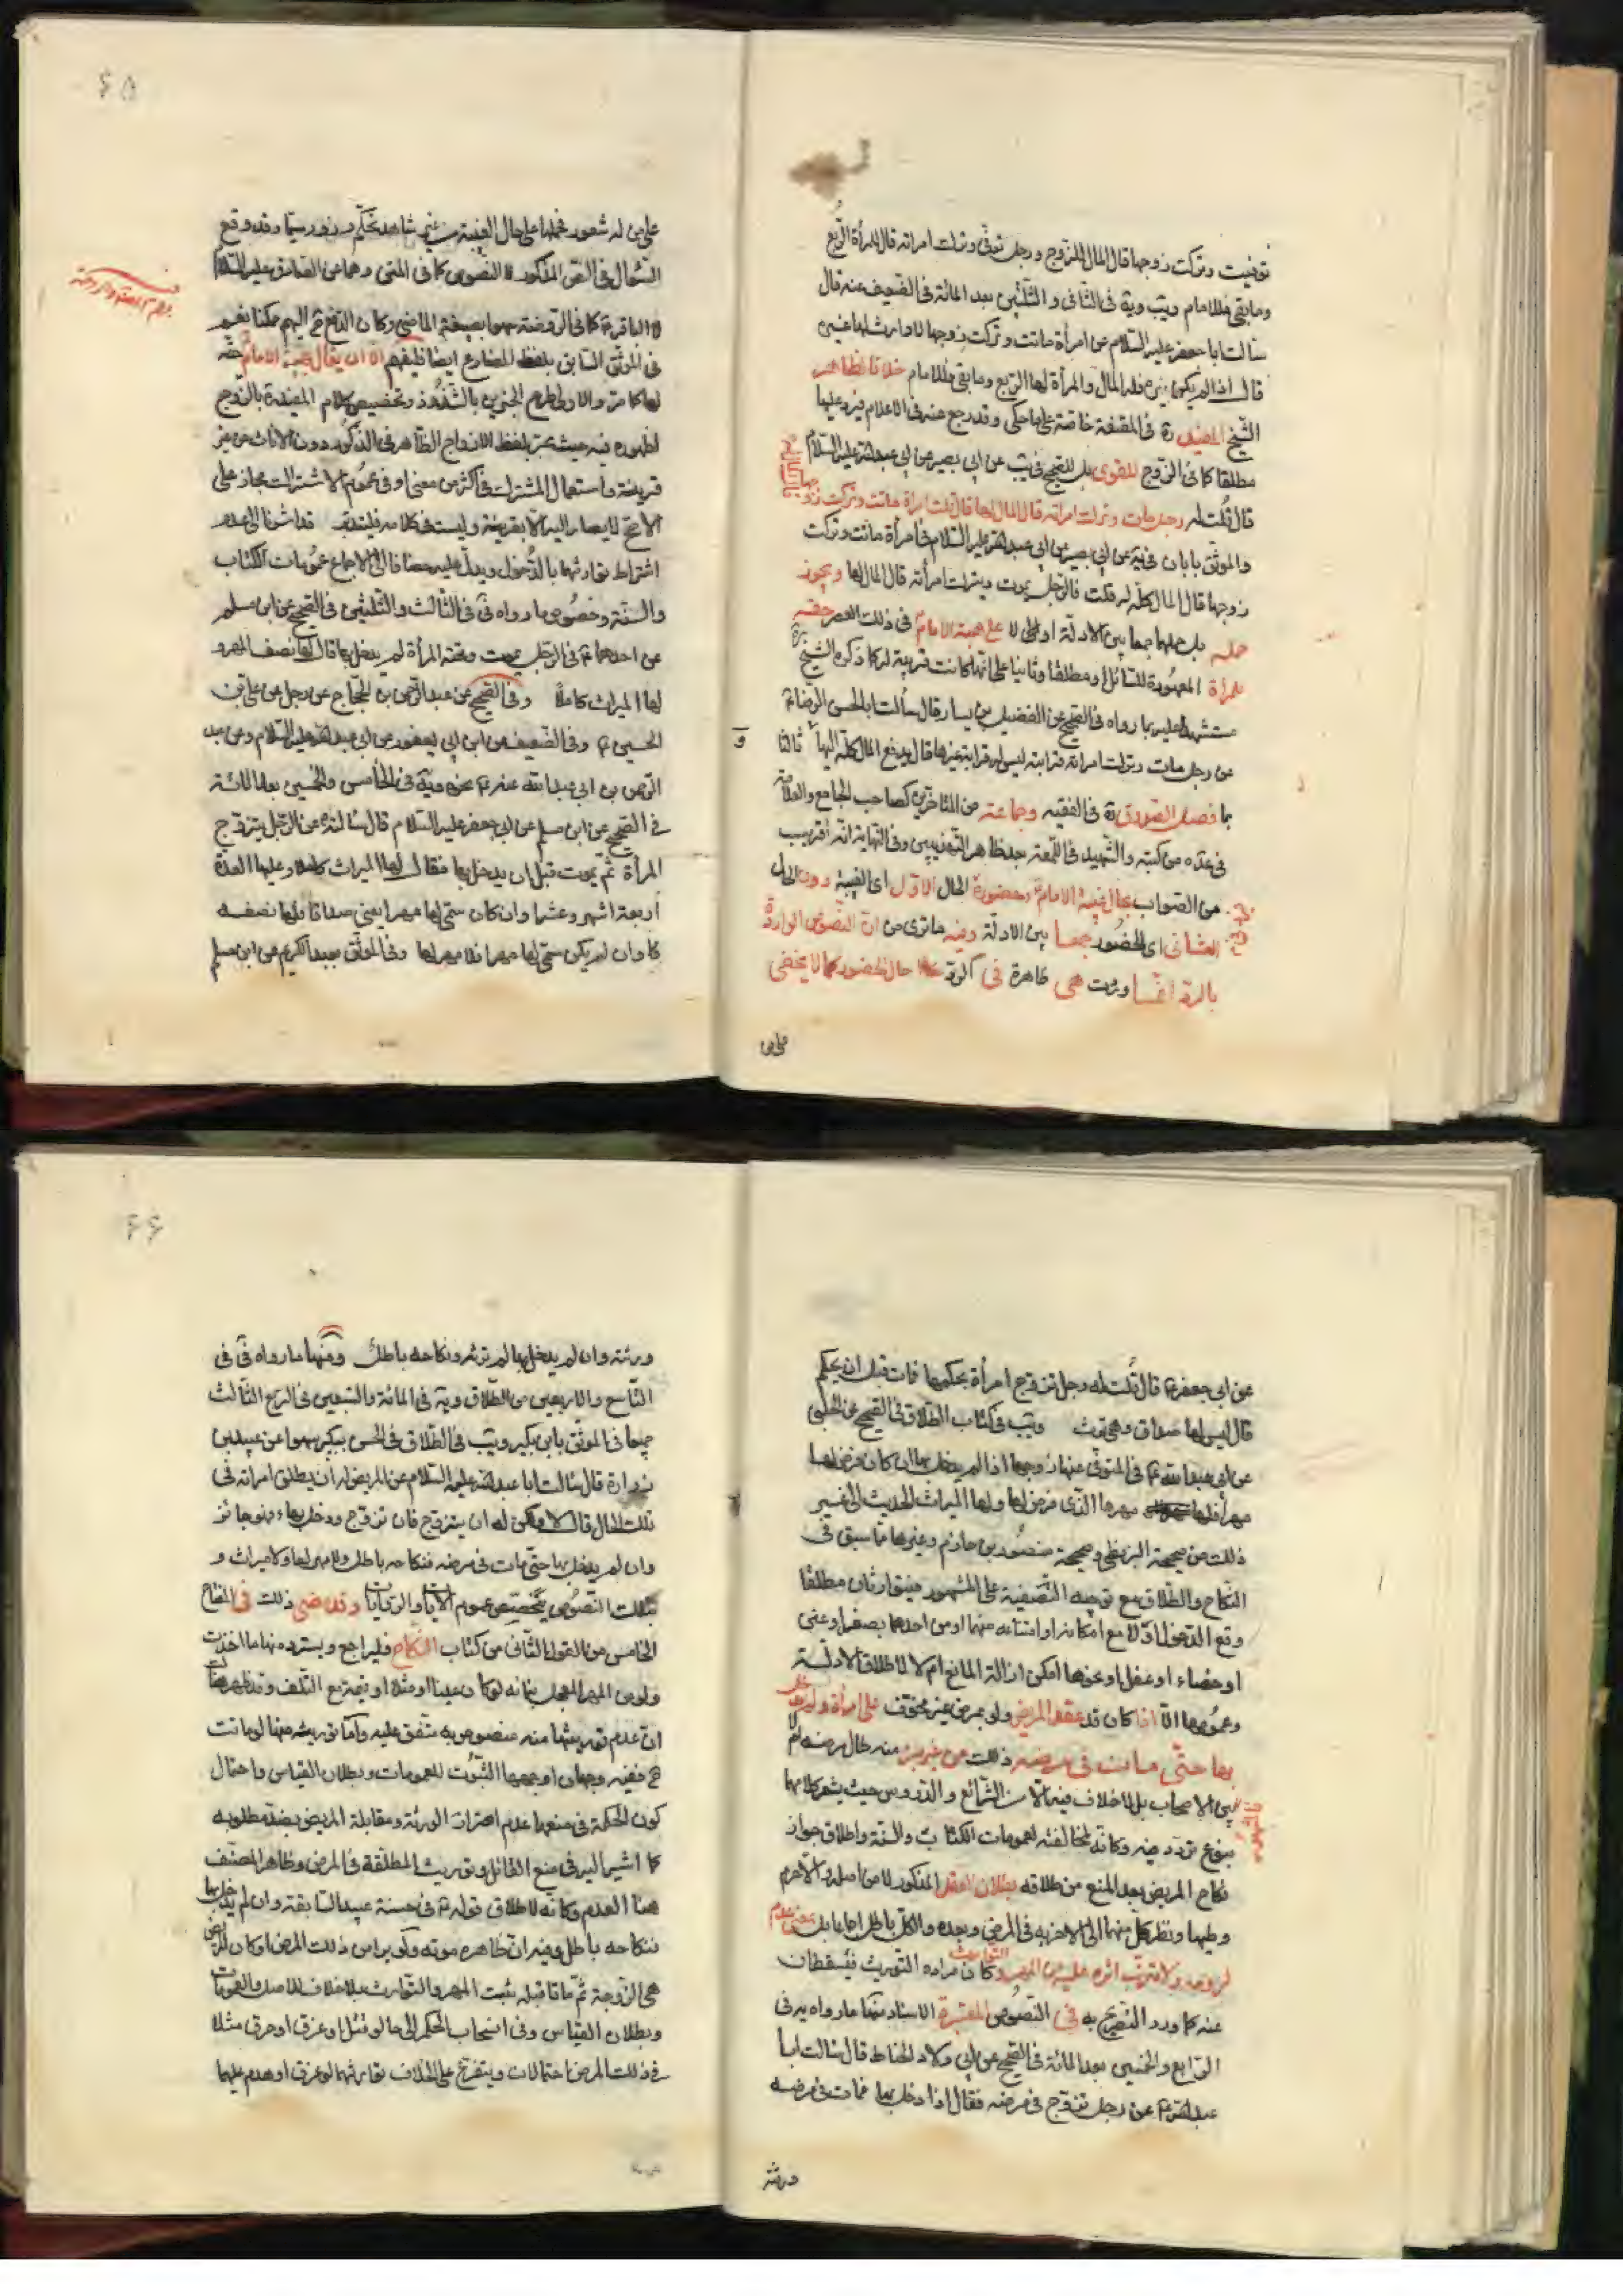 توفيت وتركت زوجها قال المال للزوج ورجل توفى وترك امراته قال للمرأة الربع
وما بقى فللامام ويب وية فى الثانى و الثلثين بعد المائة فى الضعيف عنه قال
سالت ابا جعفر عليه السلام عن امرأة ماتت وتركت زوجها لا وارث لها غيره
قال اذا لم يكن غيره فله المال والمرأة لها الربع وما بقى فللامام خلافا لظاهر
الشيخ المفيد ره فى المقنعة خاصة على ما حكى وقد رجع عنه فى الاعلام فيرد عليها
مطلقا كما فى الزوج للقوى بل للصحيح فى يب عن ابى بصير عن ابى عبدالله عليه السلام
قال قلت له رجل مات وترك امراته قال المال لها قال قلت امراة ماتت وتركت زوجها
والموثق بابان فى ية عن ابى بصير عن ابى عبدالله عليه السلام فى امرأة ماتت وتركت
زوجها قال المال كله له قلت فالرجل يموت ويترك امرأته قال المال لها ويجوز
حمله بل حملهما جمعا بين الادلة اولى لا على هبة الامام فى ذلك العصر حقه
للمرأة المعهودة للسائل او مطلقا وثانيا على انها كانت قريبة له كما ذكره الشيخ
مستشهدا عليه بما رواه فى الصحيح عن الفضيل بن يسار قال سألت ابا الحسن الرضا
عن رجل مات وترك امراته قرابته ليس له قرابة غيرها قال يدفع المال كله اليها ثالثا
بما فصل الصدوق ره فى الفقيه وجماعة من المتاخرين كصاحب الجامع والعلامة
فى عدة من كتبه والشهيد فى اللمعة بعد ظاهر التهذيبين وفى النهاية انه أقرب
من الصواب بحال غيبة الامام وحضوره الحال الاول اى الغيبة دون الحال
الثانى اى الحضور جمعا بين الادلة وفيه ما ترى من ان النصوص الواردة
بالرد انما وردت هى ظاهرة فى الرد حال الحضور كما لا يخفى
على من
۶۵
على من له شعور فحملها على حال الغيبة من غير شاهد تحكم و زور سيما وقد وقع
السؤال فى النص المذكور النصوص كما فى المتن وهما عن الصادق عليه السلام
والباقر كما فى الروضة سهوا بصيغة الماضى وكان الدفع ح اليهم ممكنا نعم
فى الموثق السابق بلفظ المضارع ايضا فليفهم الا ان يقال بهبة الامام حقه
لها كما مر والاولى طرح الخبرين بالشذوذ وتخصيص كلام المفيد بالزوج
لظهوره فيه حيث عبر بلفظ الازواج الظاهر فى الذكور دون الاناث من غير
قرينة واستعمال المشترك فى اكثر من معنى او فى عموم الاشتراك مجاز على
الاصح لا يصار اليه الا بقرينة وليست فى كلامه فليتدبر قد اشرنا الى عدم
اشتراط توارثهما بالدخول ويدل عليه مضافا الى الاجماع عمومات الكتاب
والسنة وخصوص ما رواه فى فى الثالث والثلثين فى الصحيح عن ابن مسلم
عن احدهما فى الرجل يموت وتحته المرأة لم يدخل بها قال لها نصف المهر و
لها الميراث كاملا وفى الصحيح عن عبد الرحمن بن الحجاج عن رجل عن على بن
الحسين وفى الضعيف عن ابن ابى يعفور عن ابى عبدالله عليه السلام وعن عبد
الرحمن بن ابى عبدالله عنه نحوه وية فى الخامس والخمسين بعد المائة
فى الصحيح عن ابن مسلم عن ابى جعفر عليه السلام قال سالته عن الرجل يتزوج
المرأة ثم يموت قبل ان يدخل بها فقال لها الميراث كاملا وعليها العدة
اربعة اشهر وعشرا وان كان سمى لها مهرا يعنى صداقا فلها نصفه
وان لم يكن سمى لها مهرا فلا مهر لها وفى الموثق بعبد الكريم عن ابن مسلم
عن ابى جعفر قال قلت له رجل تزوج امرأة بحكمها فمات قبل ان يحكم
قال ليس لها صداق وهى ترث ويب فى كتاب الطلاق فى الصحيح عن الحلبى
عن ابى عبدالله فى المتوفى عنها زوجها اذا لم يدخل بها ان كان فرض لها
مهرا فلها مهرها الذى فرض لها ولها الميراث الحديث الى غير
ذلك من صحيحة البزنطى وصحيحة منصور بن حازم وغيرها مما سبق فى
النكاح والطلاق مع توجيه التنصيف على المشهور فيتوارثان مطلقا
وقع الدخول اولا مع امكانه او امتناعه منهما او من احدهما بصغر او عنن
او خصاء او عفل او نحوها امكن ازالة المانع ام لا لاطلاق الادلة
وعمومها الا اذا كان قد عقد المريض ولو بمرض غير مخوف على امرأة ولم يدخل
بها حتى مات فى مرضه ذلك من غير برء منه طال مرضه ام لا
بين الاصحاب بلا خلاف فيه الا من الشرائع و الدروس حيث يشعر كلامهما
بنوع تردد فيه وكانه لمخالفته لعمومات الكتاب والسنة واطلاق جواز
نكاح المريض بعد المنع من طلاقه بطلان العقد المذكور لا من اصله والا حرم
وطيها ونظر كل منهما الى الاخر به فى المرض وبعده والكل باطل اجماعا بل بمعنى عدم
لزومه ولا ترتب اثره عليه من المهر التوارث وكان مراده التوريث فيسقطان
عنه كما ورد التصريح به فى النصوص المعتبرة الاسناد منها ما رواه يب فى
الرابع والخمسين بعد المائة فى الصحيح عن ابى ولاد الحناط قال سالت ابا
عبدالله عن رجل تزوج فى مرضه فقال اذا دخل بها فمات فى مرضه
ورثته
۶۶
ورثته وان لم يدخل بها لم ترثه ونكاحه باطل ومنها ما رواه فى فى
التاسع والاربعين من الطلاق وية فى المائة والتسعين فى الربع الثالث
جميعا فى الموثق بابن بكير ويب فى الطلاق فى الحسن ببكير سهوا عن عبيد بن
زرارة قال سالت ابا عبدالله عليه السلام عن المريض له ان يطلق امراته فى
تلك الحال قال لا ولكن له ان يتزوج فان تزوج ودخل بها فهو جائز
وان لم يدخل بها حتى مات فى مرضه فنكاحه باطل ولا مهر لها ولا ميراث و
بتلك النصوص يخصص عموم الايات والروايات وقد مضى ذلك فى المفتاح
الخامس من القول الثانى من كتاب النكاح فليراجع ويسترد منها ما اخذت
ولو من المهر المعجل بيانه لو كان عينا او مثله او قيمة مع التلف وقد ظهر هنا
ان عدم توريثها منه منصوص به متفق عليه وأما توريثه منها لو ماتت
ح ففيه وجهان اوجههما الثبوت للعمومات وبطلان القياس واحتمال
كون الحكمة فى منعها عدم اضرار الورثة ومقابلة المريض بضد مطلوبه
كما اشير اليه فى منع القاتل وتوريث المطلقة فى المرض وظاهر المصنف
هنا العدم وكانه لاطلاق قوله فى حسنة عبيد السابقة وان لم يدخل بها
فنكاحه باطل وفيه ان ظاهره موته ولو برا من ذلك المرض او كان المريض
هى الزوجة ثم ماتا قبله يثبت المهر والتوارث بلا خلاف للاصل والعمومات
وبطلان القياس وفى انسحاب الحكم الى ما لو قتل او غرق او حرق مثلا
فى ذلك المرض احتمالات ويتفرع على الخلاف توارثهما لو غرق او هدم عليهما